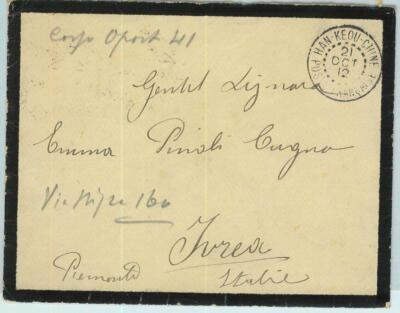 Corso Oport 41
HAN-KEOU-CHINE
21
OCT
12
POSTE FRANÇAISE
Gentil Signora
Emma Pinoli Cugno
160
Ivrea
Piemonte
Italie